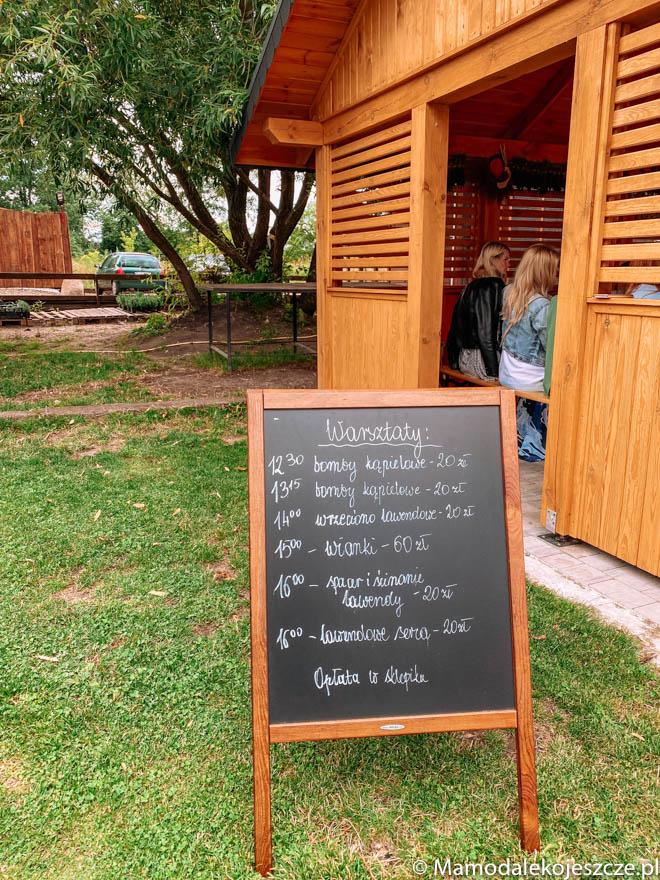 Warsztaty:
12³⁰ bomby kąpielowe - 20 zł
13¹⁵ bomby kąpielowe - 20 zł
14⁰⁰ wrzeciono lawendowe - 20 zł
15⁰⁰ - wianki - 60 zł
16⁰⁰ - spacer i ścinanie
lawendy - 20 zł
16⁰⁰ - lawendowe serca - 20 zł
Opłata w sklepiku
© Mamodalekojeszcze.pl